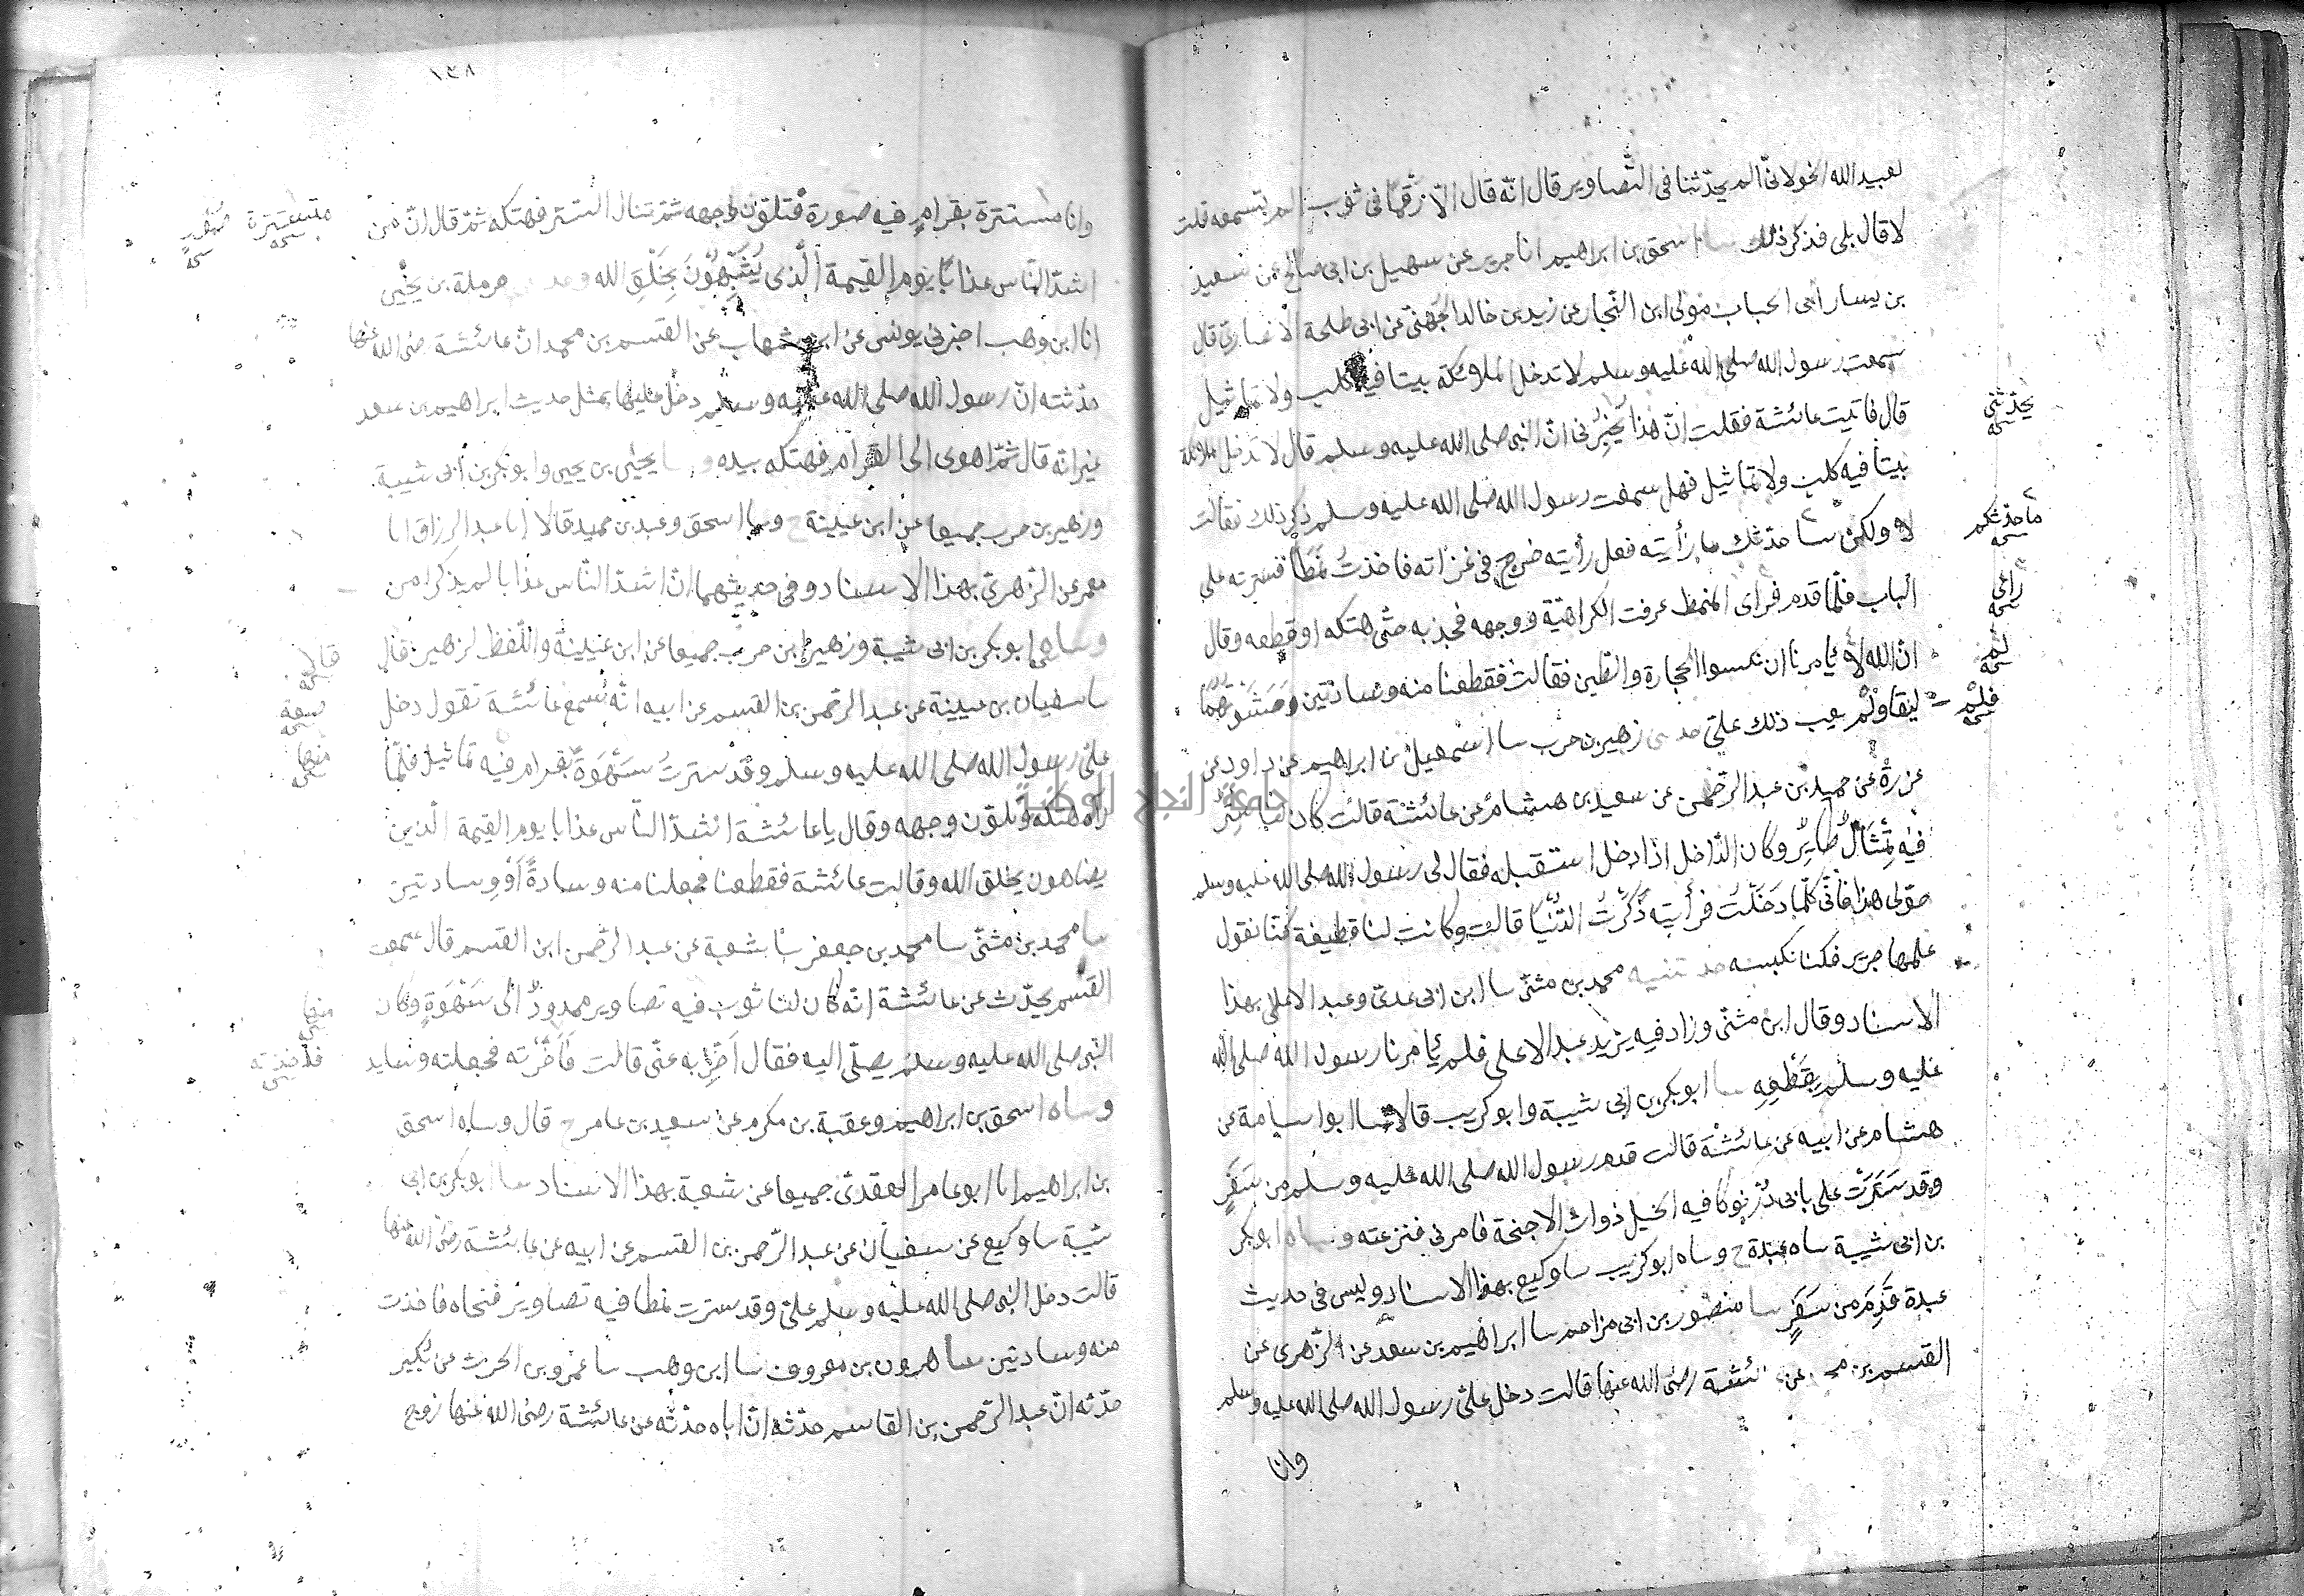 لعبيد الله الخولانى الم يحدثنا فى التصاوير قال انه قال الا رقما فى ثوب الم تسمعه قلت
لا قال بلى فذكر ذلك سا اسحق بن ابراهيم انا جرير عن سهيل بن ابى صالح عن سعيد
بن يسار ابى الحباب مولى ابن النجار عن زيد بن خالد الجهنى عن ابى طلحة الانصارى قال
سمعت رسول الله صلى الله عليه وسلم لا تدخل الملائكة بيتا فيه كلب ولا تماثيل
قال فاتيت عائشة فقلت ان هذا يخبرنى ان النبى صلى الله عليه وسلم قال لا تدخل الملائكة
يحدثنى
بيتا فيه كلب ولا تماثيل فهل سمعت رسول الله صلى الله عليه وسلم ذكر ذلك فقالت
لا ولكن سا حدثك ما رأيته فعل رأيته خرج فى غزاته فاخذت نمطا فسترته على
ما حدثكم
الباب فلما قدم فراى النمط عرفت الكراهية فى وجهه فجذبه حتى هتكه او قطعه وقال
راى
ان الله لا يامرنا ان نكسوا الحجارة والطين فقالت فقطعنا منه وسادتين وحشوتهما
لم
ليفا ولم يعب ذلك على حدثنى زهير بن حرب سا اسمعيل بن ابراهيم عن داود عن
فلم
عزرة عن حميد بن عبد الرحمن عن سعيد بن هشام عن عائشة قالت كان لنا ستر
فيه تمثال طاير وكان الداخل اذا دخل استقبله فقال لى رسول الله صلى الله عليه وسلم
حولى هذا فانى كلما دخلت فرأيته ذكرت الدنيا قالت وكانت لنا قطيفة كنا نقول
علمها حرير فكنا نلبسه حدثنيه محمد بن مثنى سا ابن ابى عدى وعبد الاعلى بهذا
الاسناد وقال ابن مثنى وزاد فيه يزيد عبد الاعلى فلم يامرنا رسول الله صلى الله
عليه وسلم بقطعه سا ابو بكر بن ابى شيبة وابو كريب قالا سا ابو اسامة عن
هشام عن ابيه عن عائشة قالت قدم رسول الله صلى الله عليه وسلم من سفر
وقد سترت على بابى درنوكا فيه الخيل ذوات الاجنحة فامرنى فنزعته وساه ابو بكر
بن ابى شيبة ساه عبدة ح وساه ابو كريب سا وكيع بهذا الاسناد وليس فى حديث
عبدة قدم من سفر سا منصور بن ابى مزاحم سا ابراهيم بن سعد عن الزهرى عن
القسم بن عن عائشة رضى الله عنها قالت دخل على رسول الله صلى الله عليه وسلم
وانا
١٣٨
وانا مستترة بقرام فيه صورة فتلون وجهه ثم تناول الستر فهتكه ثم قال ان من
متسترة
اشد الناس عذابا يوم القيمة الذى يشبهون بخلق الله وحدثنى حرملة بن يحيى
انا ابن وهب اخبرنى يونس عن ابن شهاب عن القسم بن محمد ان عائشة رضى الله عنها
حدثته ان رسول الله صلى الله عليه وسلم دخل عليها بمثل حديث ابراهيم بن سعد
غير انه قال ثم اهوى الى القرام فهتكه بيده وسا يحيى بن يحيى وابو بكر بن ابى شيبة
وزهير بن حرب جميعا عن ابن عيينة ح وسا اسحق وعبد بن حميد قالا انا عبد الرزاق انا
معمر عن الزهرى بهذا الاسناد وفى حديثهما ان اشد الناس عذابا لم يذكرا من
وسا ابو بكر بن ابى شيبة وزهير ابن حرب جميعا عن ابن عيينة واللفظ لزهير قال
قالا
سا سفيان بن عيينة عن عبد الرحمن بن القسم عن ابيه انه سمع عائشة تقول دخل
سمعت
على رسول الله صلى الله عليه وسلم وقد سترت سهوة بقرام فيه تماثيل فلما
راه هتكه وتلون وجهه وقال يا عائشة اشد الناس عذابا يوم القيمة الذين
يضاهون بخلق الله وقالت عائشة فقطعنا فجعلنا منه وسادة او وسادتين
سا محمد بن مثنى سا محمد بن جعفر سا شعبة عن عبد الرحمن ابن القسم قال سمعت
القسم يحدث عن عائشة انه كان لنا ثوب فيه تصاوير ممدود الى سهوة وكان
النبى صلى الله عليه وسلم يصلى اليه فقال اخريه عنى قالت فاخرته فجعلته وسايد
وساه اسحق بن ابراهيم وعقبة بن مكرم عن سعيد بن عامر ح قال وساه اسحق
بن ابراهيم انا ابو عامر العقدى جميعا عن شعبة بهذا الاسناد سا ابو بكر بن ابى
شيبة سا وكيع عن سفيان عن عبد الرحمن بن القسم عن ابيه عن عائشة رضى الله عنها
قالت دخل النبى صلى الله عليه وسلم على وقد سترت نمطا فيه تصاوير فنحاه فاخذت
منه وسادتين سا هرون بن معروف سا ابن وهب سا عمرو بن الحرث عن بكير
حدثه ان عبد الرحمن بن القاسم حدثه ان اباه حدثه عن عائشة رضى الله عنها زوج
جامعة النجاح الوطنية